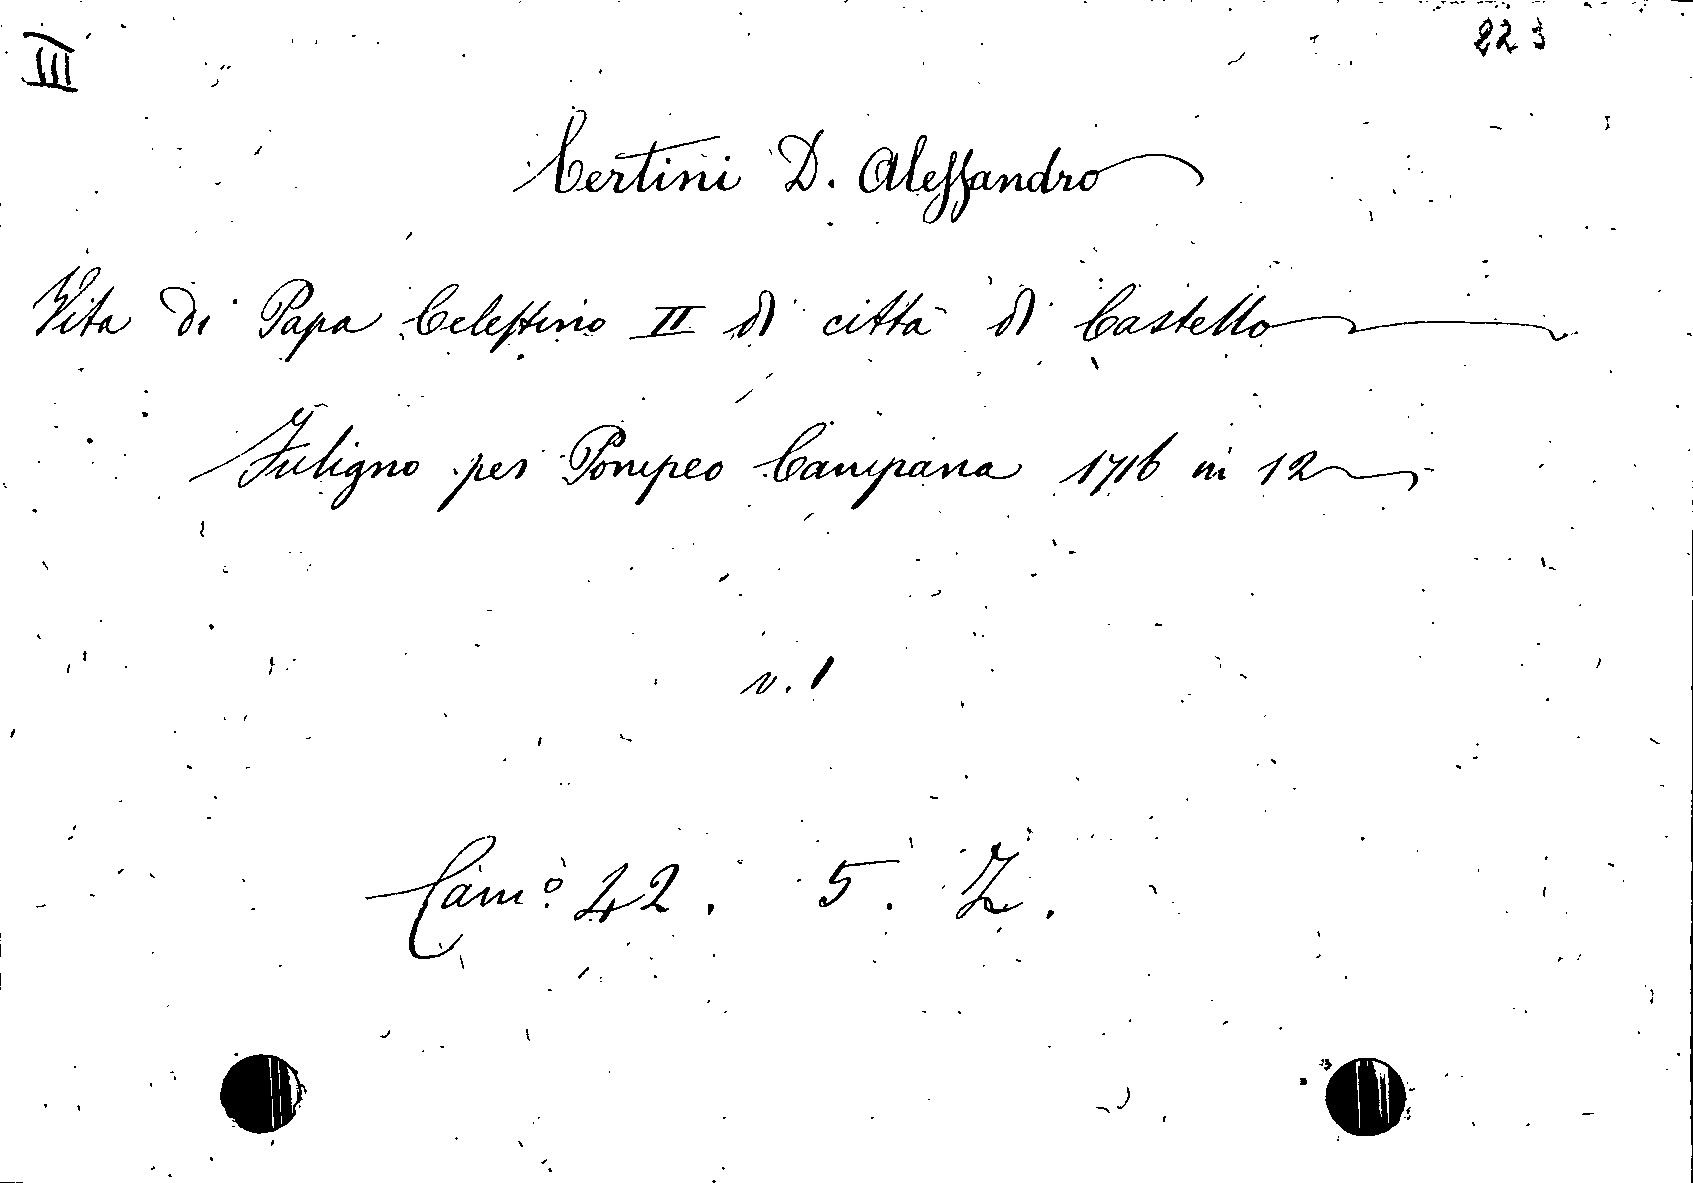 III
223
Certini D. Alessandro
Vita di Papa Celestino II di città di Castello
Fuligno per Pompeo Campana 1716 in 12
v. 1
Cam.º 42. 5. Z.